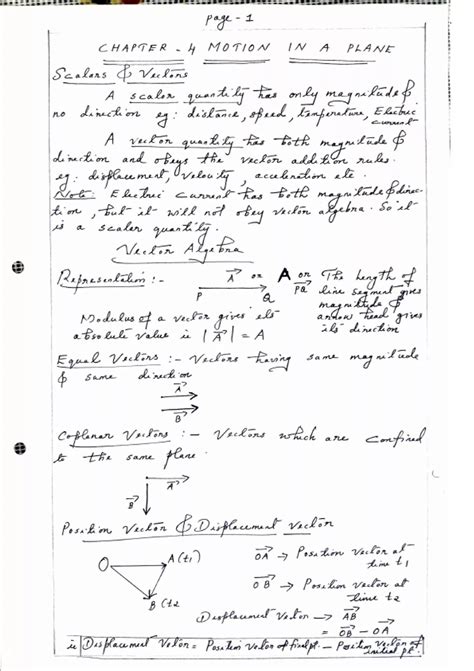 page - 1
CHAPTER - 4 MOTION IN A PLANE
Scalars & Vectors
A scalar quantity has only magnitude &
no direction eg: distance, speed, temperature, Electric
current
A vector quantity has both magnitude &
direction and obeys the vector addition rules.
eg: displacement, velocity, acceleration etc.
Note: Electric current has both magnitude & direc-
tion, but it will not obey vector algebra. So it
is a scalar quantity.
Vector Algebra
Representation :- A⃗ or A or PQ⃗
P Q
The length of
line segment gives
magnitude &
arrow head gives
its direction
Modulus of a vector gives its
absolute value ie |A⃗| = A
Equal Vectors :- Vectors having same magnitude
& same direction
A⃗
B⃗
Coplanar Vectors :- Vectors which are confined
to the same plane.
A⃗
B⃗
Position Vector & Displacement vector
O A(t1)
B(t2
OA⃗ → Position Vector at
time t1
OB⃗ → Position vector at
time t2
Displacement Vector → AB⃗
= OB⃗ - OA⃗
ie Displacement Vector = Position Vector of final pt. - Position Vector of
initial pt.